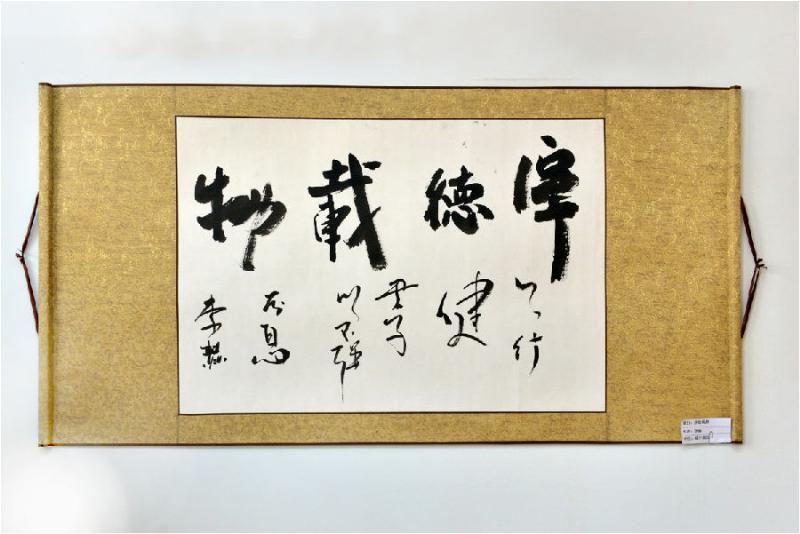 厚德載物
天行
健
君子
以自強
不息